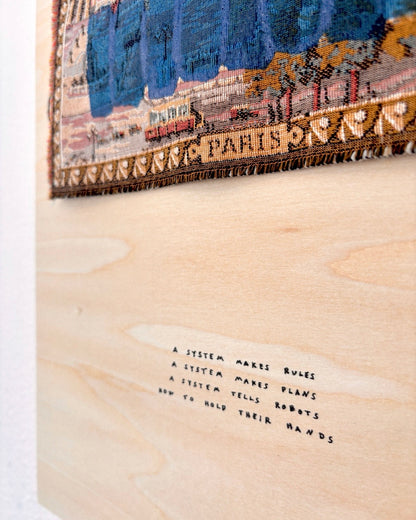 PARIS
A SYSTEM MAKES RULES
A SYSTEM MAKES PLANS
A SYSTEM TELLS ROBOTS
HOW TO HOLD THEIR HANDS